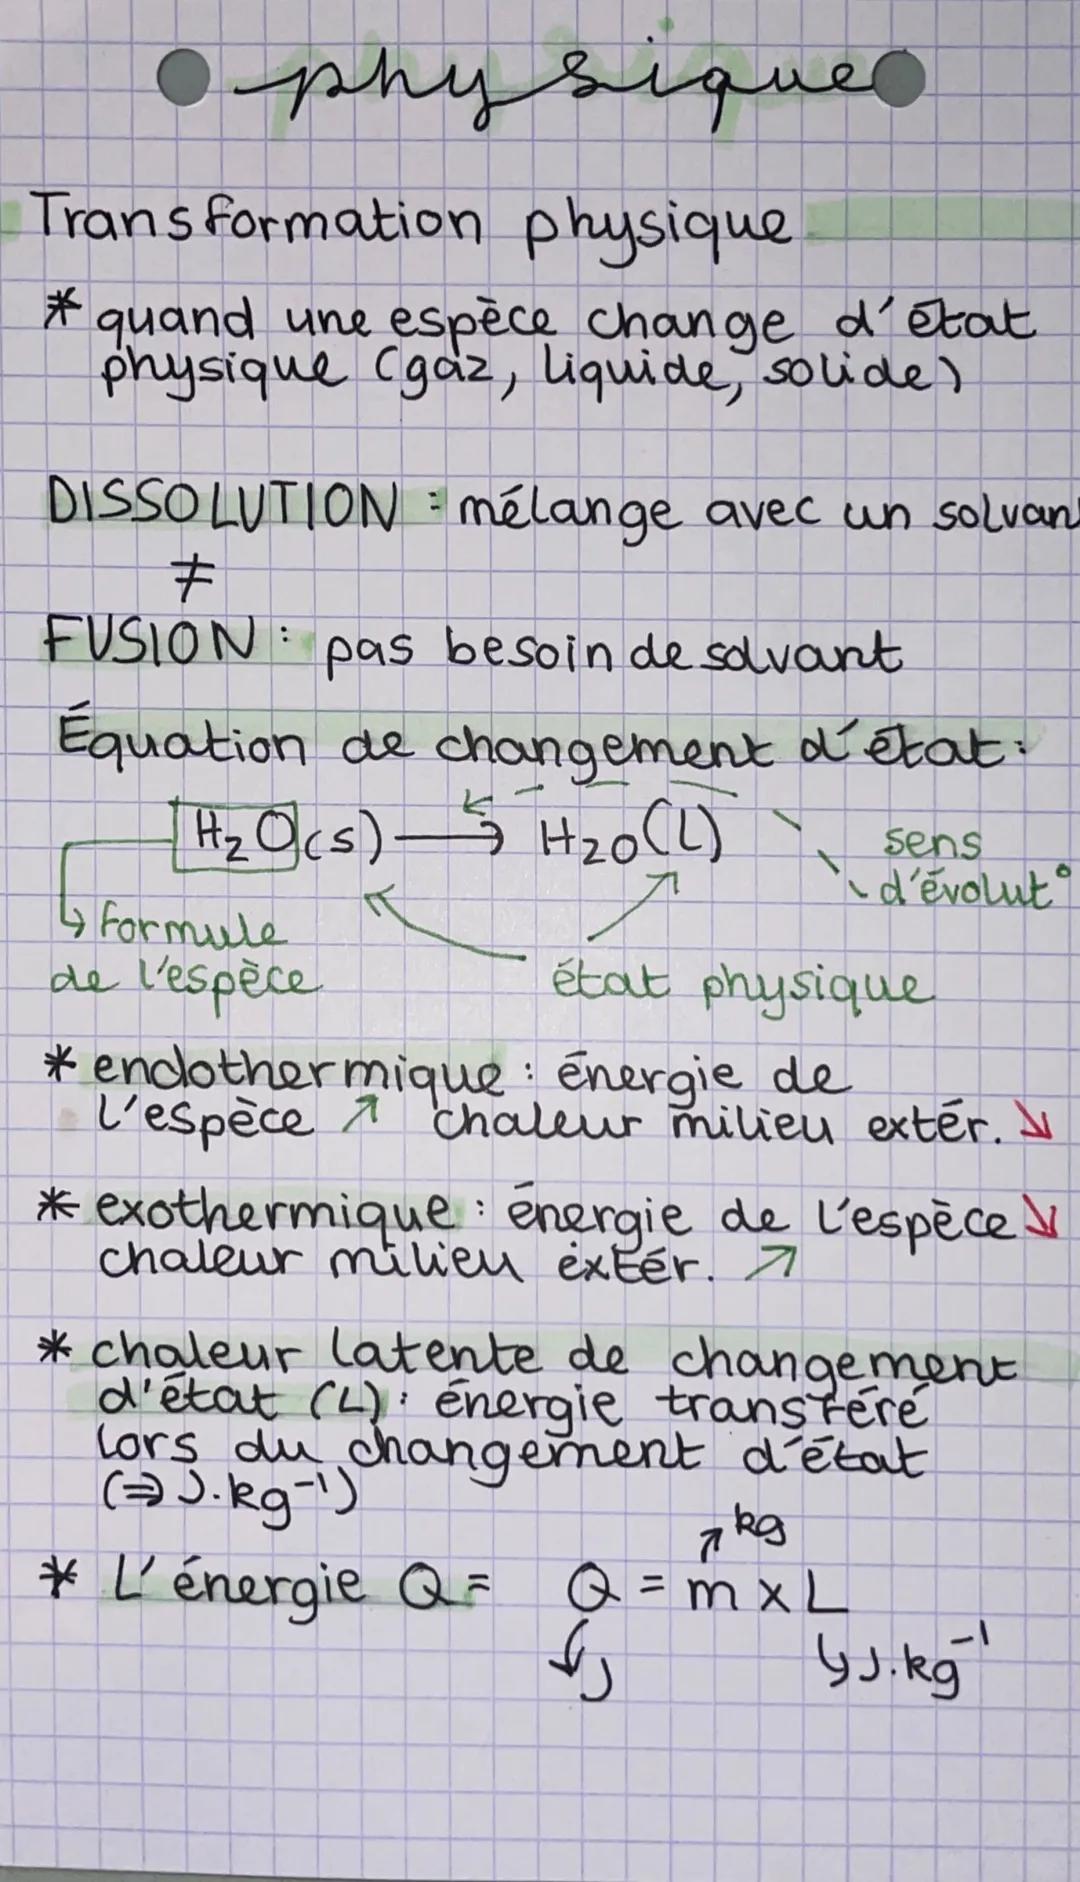 physique
Transformation physique
* quand une espèce change d'état
physique (gaz, liquide, solide)
DISSOLUTION : mélange avec un solvant
≠
FUSION : pas besoin de solvant
Équation de changement d'état :
H₂O(s) → H₂O(L)
sens
d'évolut°
↳ formule
de l'espèce
état physique
* endothermique : énergie de
l'espèce ↗ chaleur milieu extér. ↘
* exothermique : énergie de l'espèce ↘
chaleur milieu extér. ↗
* chaleur latente de changement
d'état (L) : énergie transféré
lors du changement d'état
(⇒ J.kg⁻¹)
↗ kg
* L'énergie Q = Q = m x L
↳ J ↳ J.kg⁻¹